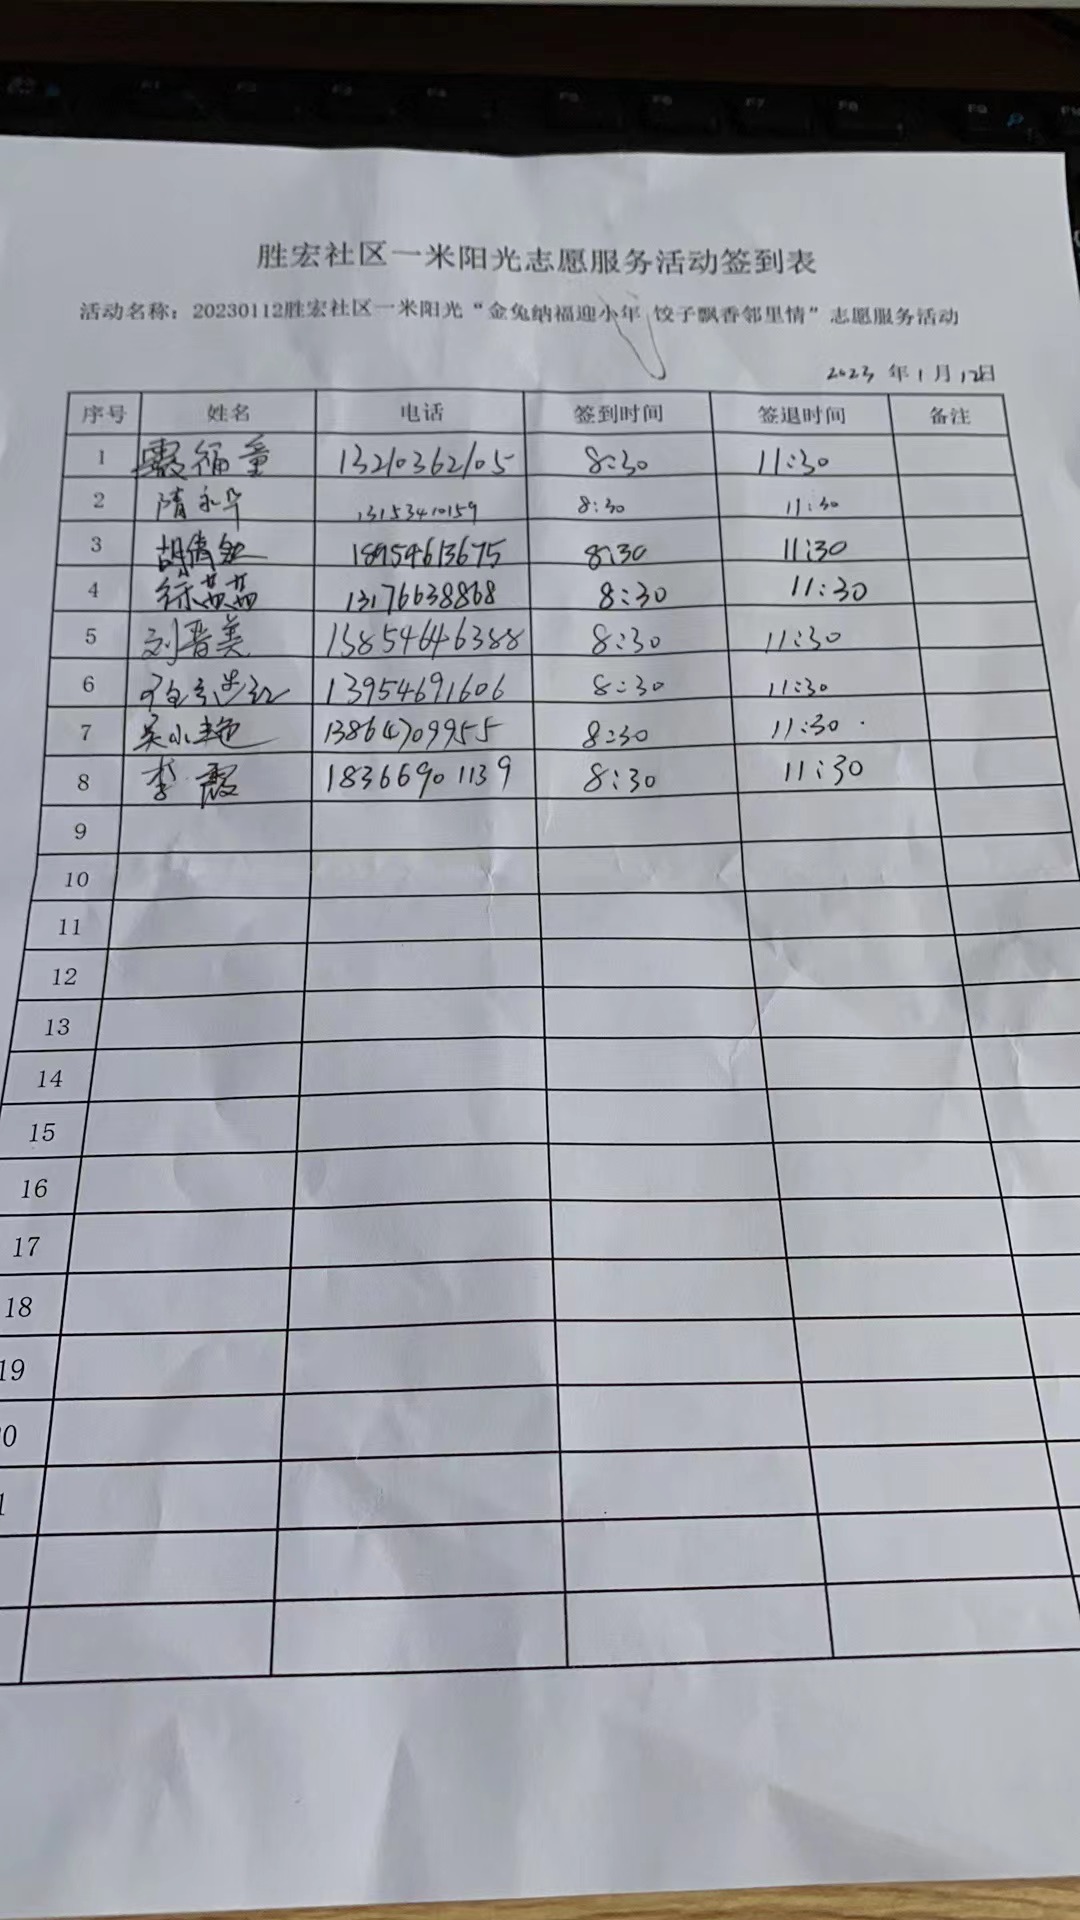 胜宏社区一米阳光志愿服务活动签到表
活动名称：20230112胜宏社区一米阳光“金兔纳福迎小年 饺子飘香邻里情”志愿服务活动
2023 年 1 月 12日
序号 姓名 电话 签到时间 签退时间 备注
1 福童 13210362105 8:30 11:30
2 隋永华 13153410159 8:30 11:30
3 胡倩 18954613675 8:30 11:30
4 徐茜茜 13176638868 8:30 11:30
5 刘晋美 13854646388 8:30 11:30
6 13954691606 8:30 11:30
7 吴小艳 13864709955 8:30 11:30
8 李霞 18366901139 8:30 11:30
9
10
11
12
13
14
15
16
17
18
19
0
1